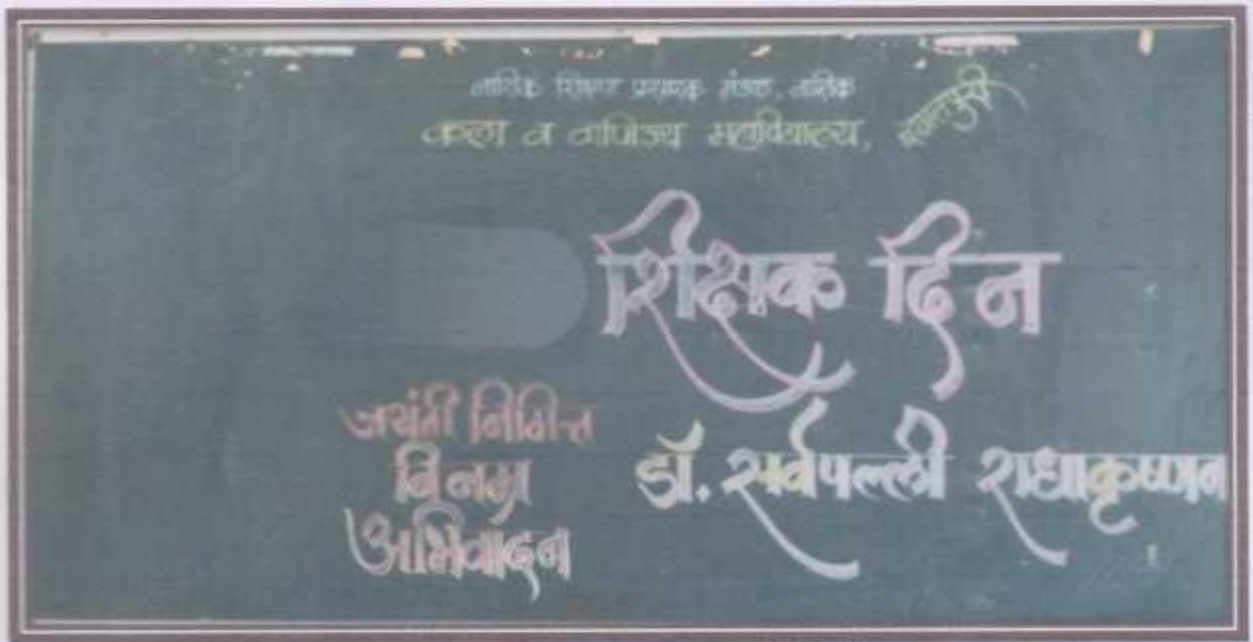 नाशिक शिक्षण प्रसारक मंडळ, नाशिक
कला व वाणिज्य महाविद्यालय,
शिक्षक दिन
डॉ. सर्वपल्ली राधाकृष्णन
जयंती निमित्त
विनम्र
अभिवादन